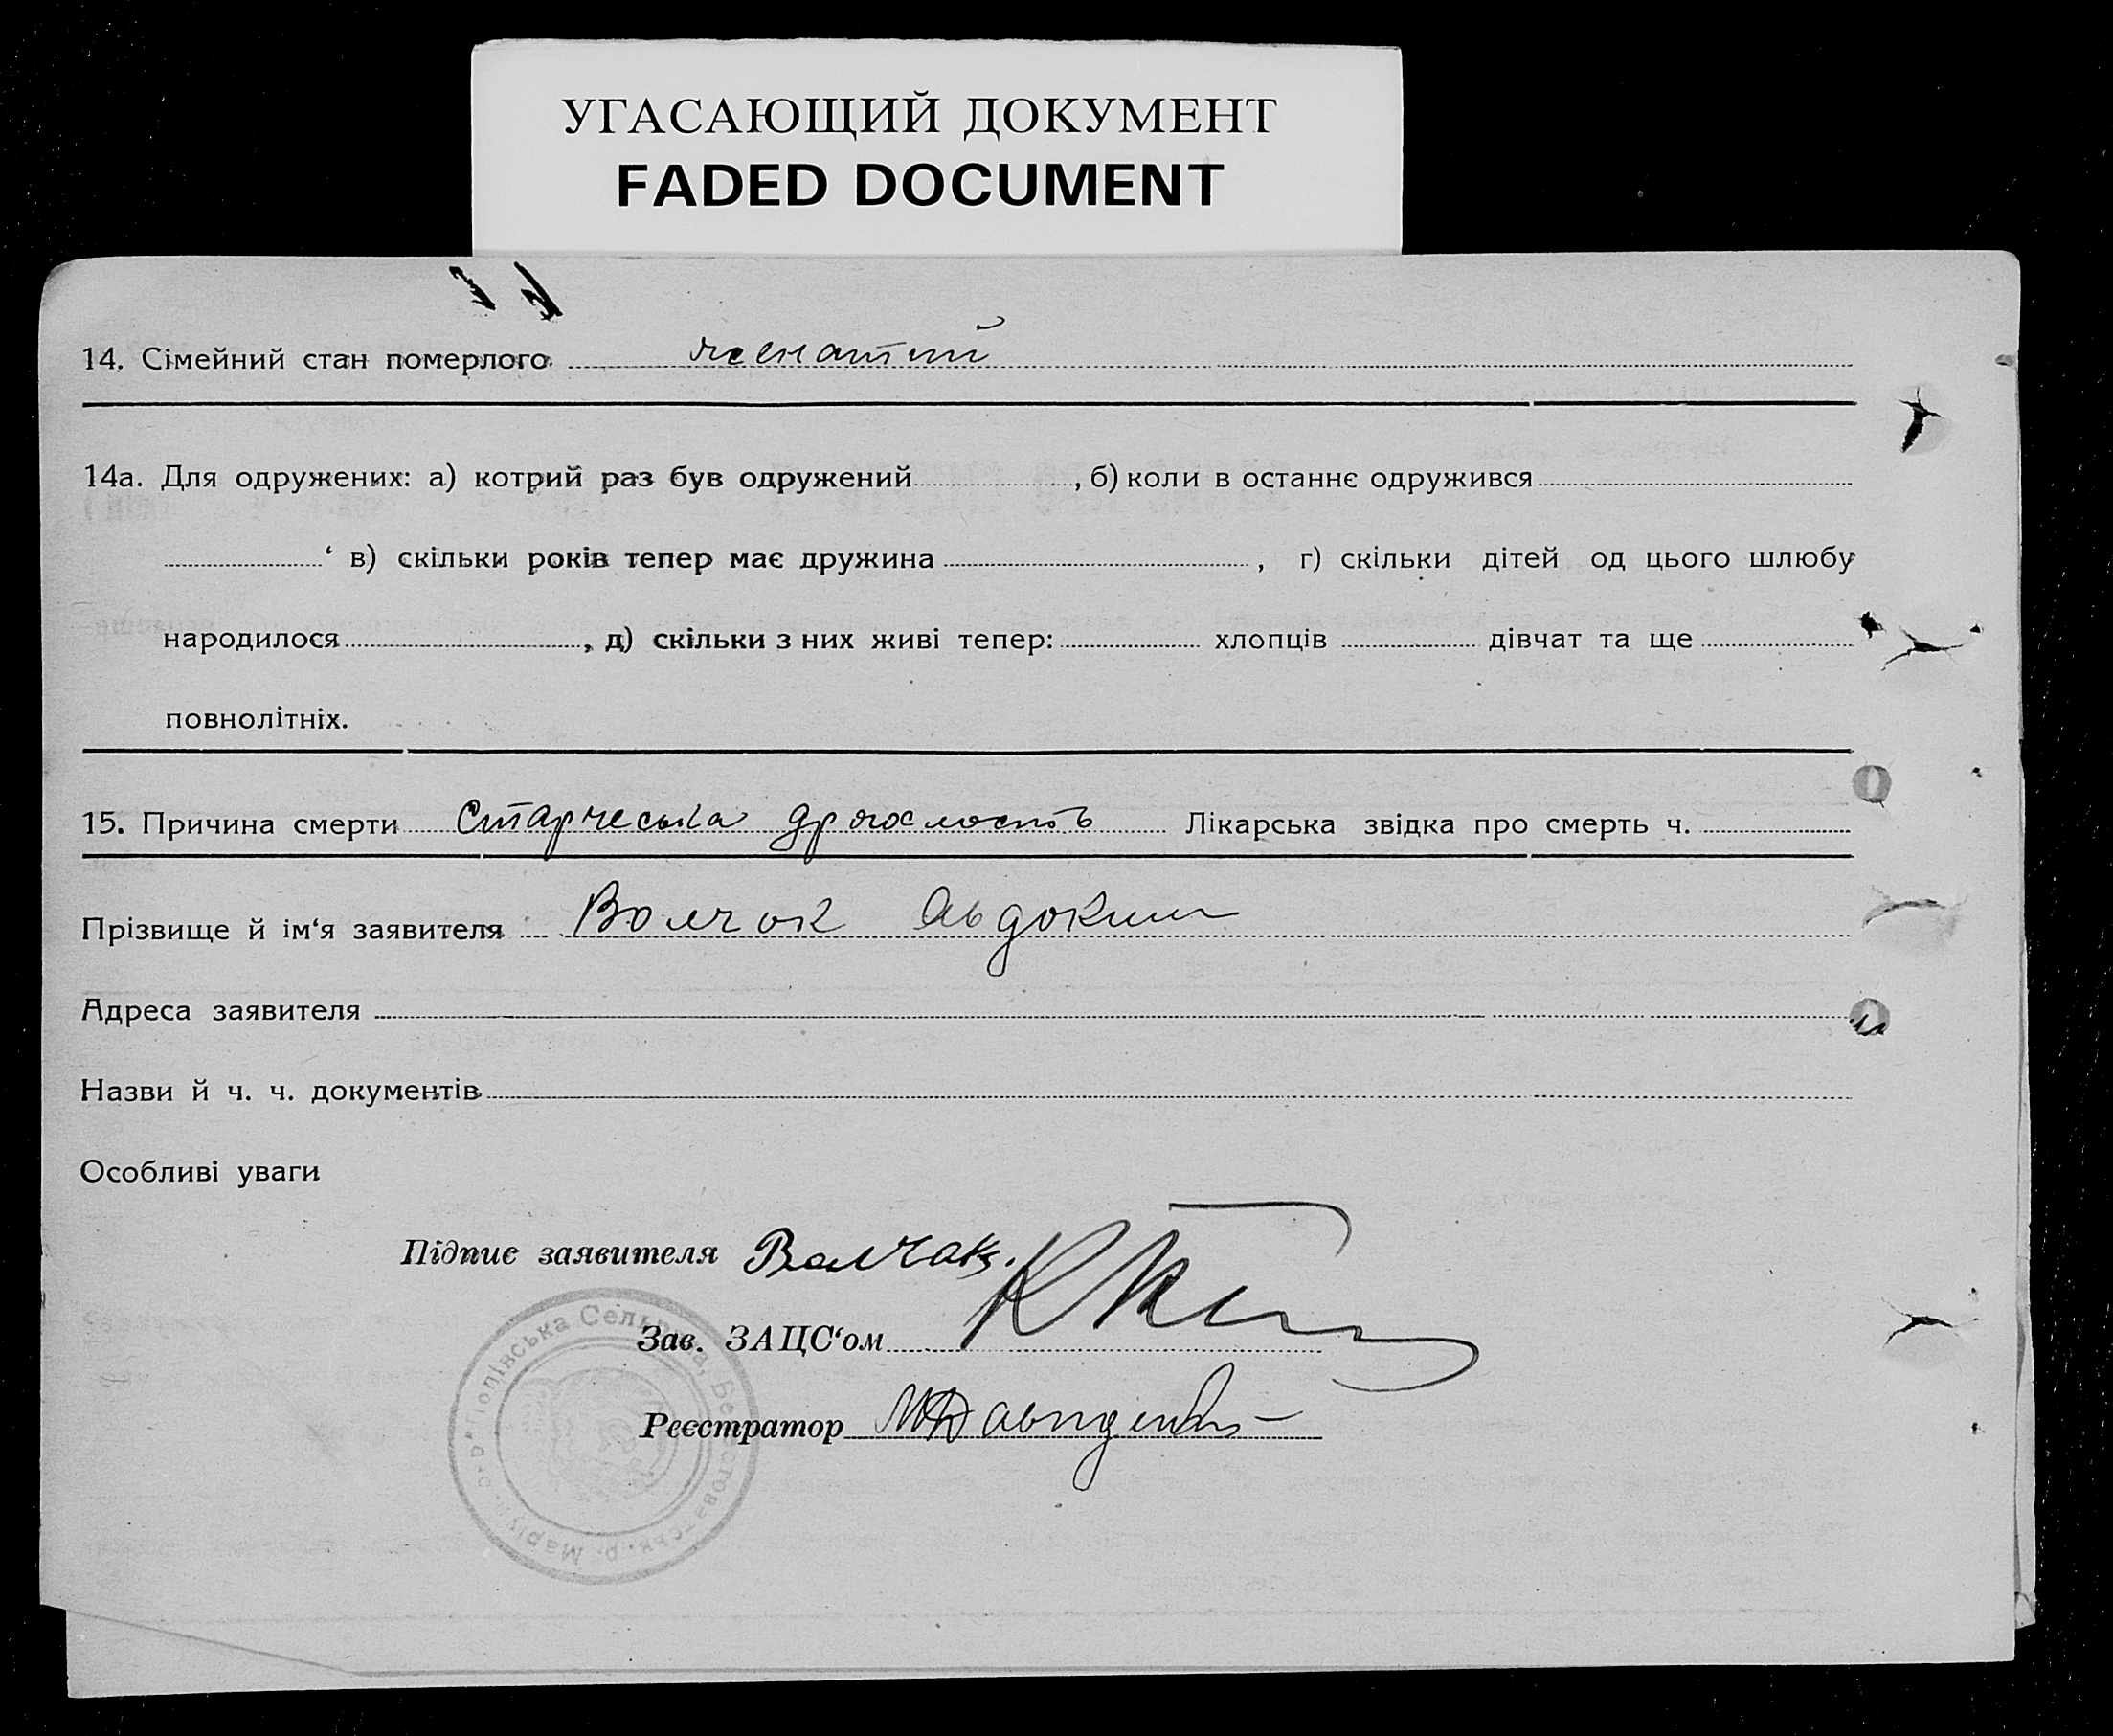 УГАСАЮЩИЙ ДОКУМЕНТ
FADED DOCUMENT
14. Сімейний стан померлого женатий
14а. Для одружених: а) котрий раз був одружений , б) коли в останнє одружився
‘ в) скільки років тепер має дружина , г) скільки дітей од цього шлюбу
народилося , д) скільки з них живі тепер: хлопців дівчат та ще
повнолітніх.
15. Причина смерти Старческа дряхлость Лікарська звідка про смерть ч.
Прізвище й ім‘я заявителя Волчок Авдоким
Адреса заявителя
Назви й ч. ч. документів
Особливі уваги
Підпис заявителя Волчок.
Зав. ЗАЦС‘ом
Реєстратор
Сельрада,